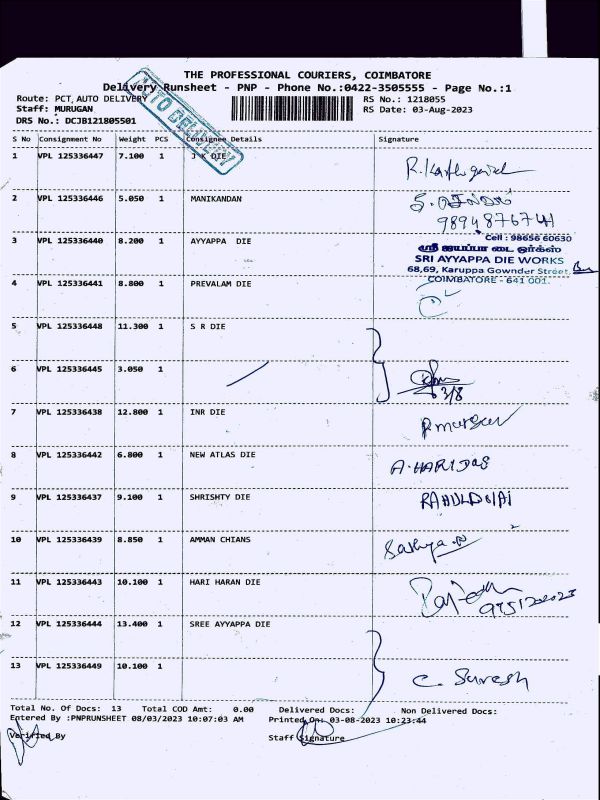 THE PROFESSIONAL COURIERS, COIMBATORE
Delivery Runsheet - PNP - Phone No.:0422-3505555 - Page No.:1
Route: PCT AUTO DELIVERY
RS No.: 1218055
Staff: MURUGAN
RS Date: 03-Aug-2023
DRS No.: DCJB121805501
AUTO DELIVERY
S No Consignment No Weight PCS Consignee Details Signature
1 VPL 125336447 7.100 1 J K DIE
2 VPL 125336446 5.050 1 MANIKANDAN
9894876741
3 VPL 125336440 8.200 1 AYYAPPA DIE
Cell : 98656 60630
ஸ்ரீ ஐயப்பா டை ஒர்க்ஸ்
SRI AYYAPPA DIE WORKS
68,69, Karuppa Gownder Street,
COIMBATORE - 641 001.
4 VPL 125336441 8.800 1 PREVALAM DIE
5 VPL 125336448 11.300 1 S R DIE
6 VPL 125336445 3.050 1
3/8
7 VPL 125336438 12.800 1 INR DIE
P. murgan
8 VPL 125336442 6.800 1 NEW ATLAS DIE
A. HARIDAS
9 VPL 125336437 9.100 1 SHRISHTY DIE
10 VPL 125336439 8.850 1 AMMAN CHIANS
Sathya
11 VPL 125336443 10.100 1 HARI HARAN DIE
12 VPL 125336444 13.400 1 SREE AYYAPPA DIE
13 VPL 125336449 10.100 1
C. Suresh
Total No. Of Docs: 13 Total COD Amt: 0.00 Delivered Docs: Non Delivered Docs:
Entered By :PNPRUNSHEET 08/03/2023 10:07:03 AM Printed On: 03-08-2023 10:23:44
Verified By Staff Signature